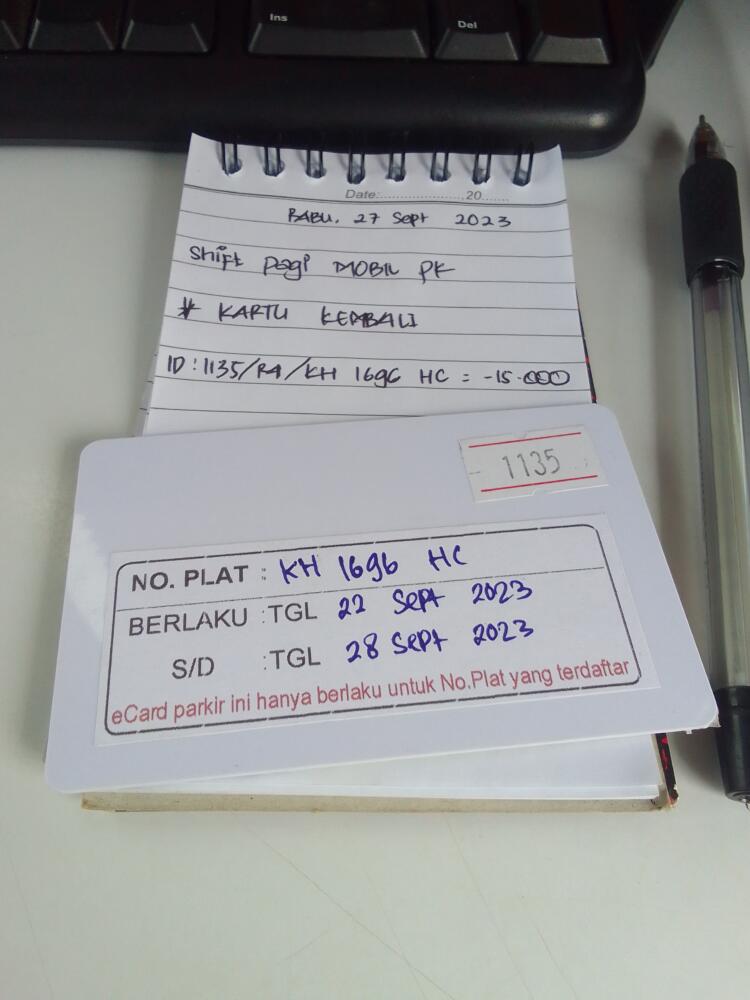 Ins
Del
Date:......................,20.......
RABU, 27 Sept 2023
Shift pagi MOBIL PK
* KARTU KEMBALI
ID : 1135/RA/KH 1696 HC = -15.000
1135
NO. PLAT : KH 1696 HC
BERLAKU : TGL 22 Sept 2023
S/D : TGL 28 Sept 2023
eCard parkir ini hanya berlaku untuk No.Plat yang terdaftar